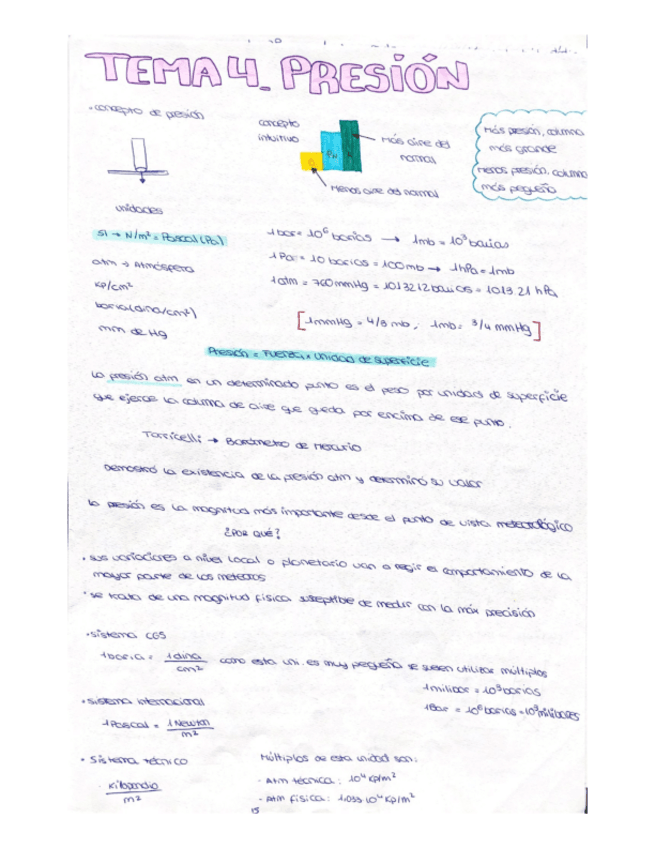 TEMA 4. PRESIÓN
• concepto de presión
concepto
intuitivo
Más aire del
normal
Menos aire del normal
Más presión, columna
más grande
Menos presión, columna
más pequeña
unidades
SI → N/m² = Pascal (Pa)
atm → Atmósfera
Kp/cm²
baria (dina/cm²)
mm de Hg
1 bar = 10⁶ barias → 1mb = 10³ barias
1 Pa = 10 barias = 100mb → 1hPa = 1mb
1 atm = 760 mmHg = 1013212 barias = 1013.21 hPa
[1mmHg = 4/3 mb, 1mb = 3/4 mmHg]
Presión = Fuerza x unidad de superficie
La presión atm en un determinado punto es el peso por unidad de superficie
que ejerce la columna de aire que queda por encima de ese punto.
Torricelli → Barómetro de Mercurio
Demostró la existencia de la presión atm y determinó su valor
la presión es la magnitud más importante desde el punto de vista meteorológico
¿POR QUÉ?
• sus variaciones a nivel local o planetario van a regir el comportamiento de la
mayor parte de los meteoros
• se trata de una magnitud física susceptible de medir con la máx precisión
• sistema CGS
1 baria = 1 dina / cm² como esta uni. es muy pequeña se suelen utilizar múltiplos
1 milibar = 10³ barias
1 Bar = 10⁶ barias = 10³ milibares
• sistema internacional
1 Pascal = 1 Newton / m²
• Sistema técnico
Kilopondio / m²
Múltiplos de esta unidad son:
- Atm técnica: 10⁴ Kp/m²
- Atm física: 1.033 10⁴ Kp/m²
15